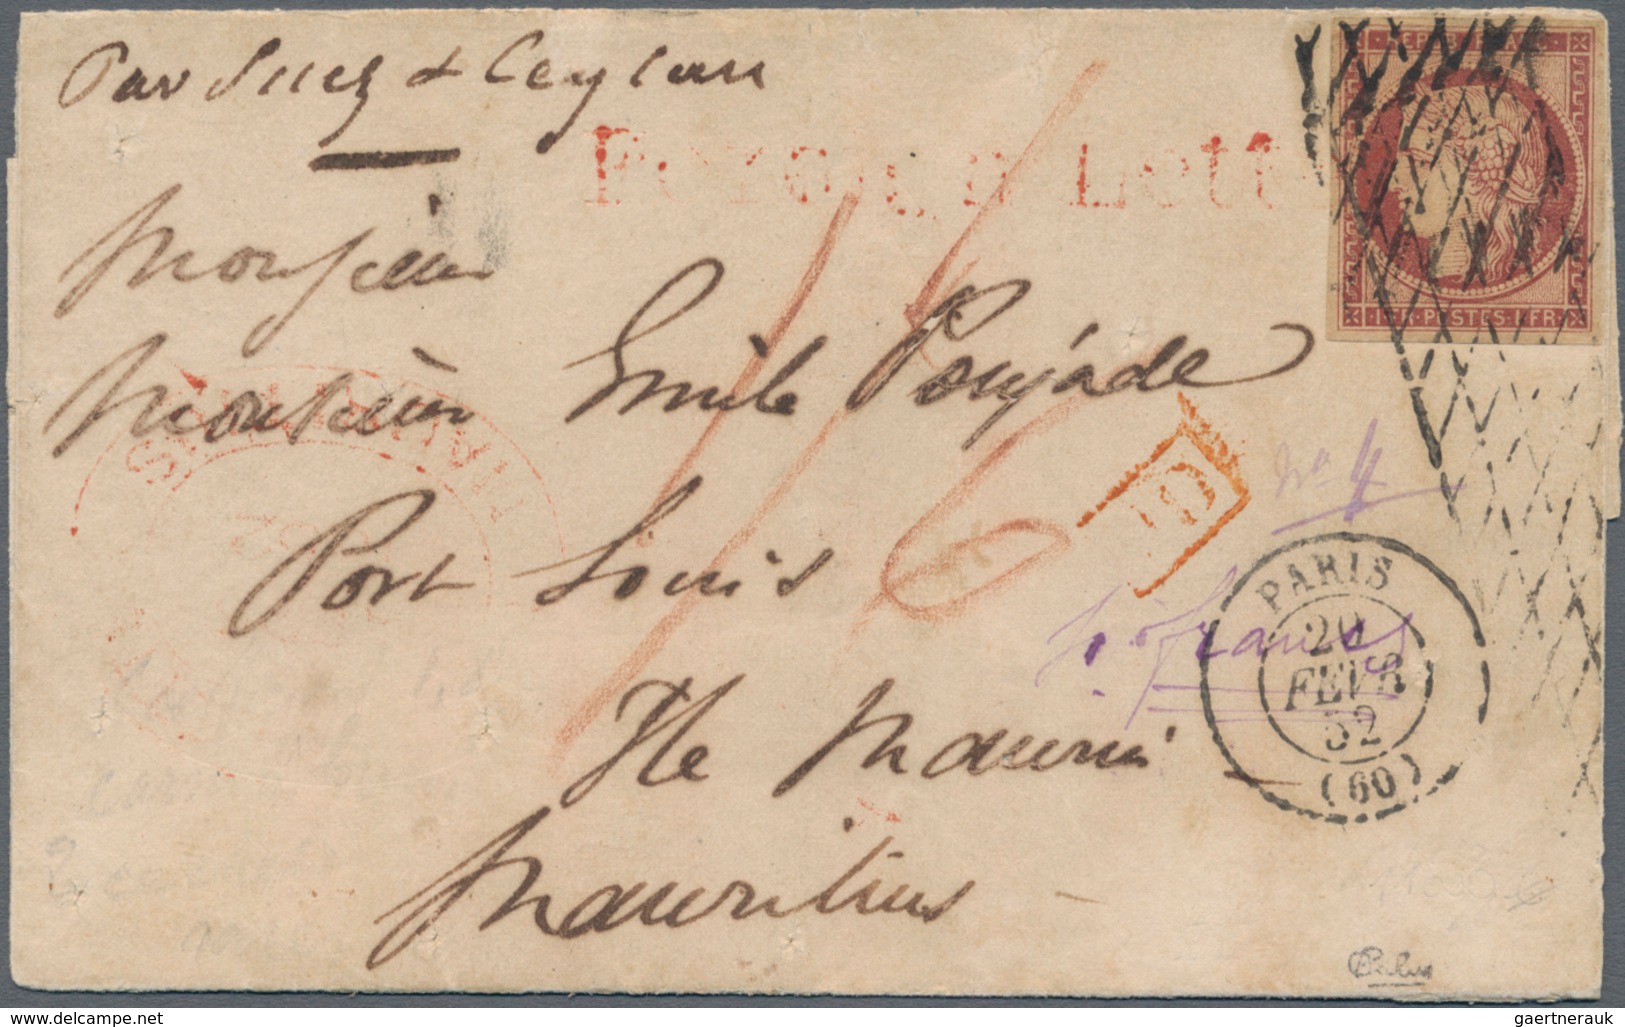 Par Suez & Ceylan
REPUB. FRANC.
Foreign Lett
1F. POSTES. 1FR.
Monsieur
Monsieur Emile Poujade
1/6
PD
No 4
Port Louis
Ile Maurice
Mauritius
1 franc
PARIS
20
FEVR
52
(60)
MAURITIUS
www.delcampe.net
gaertnerauk